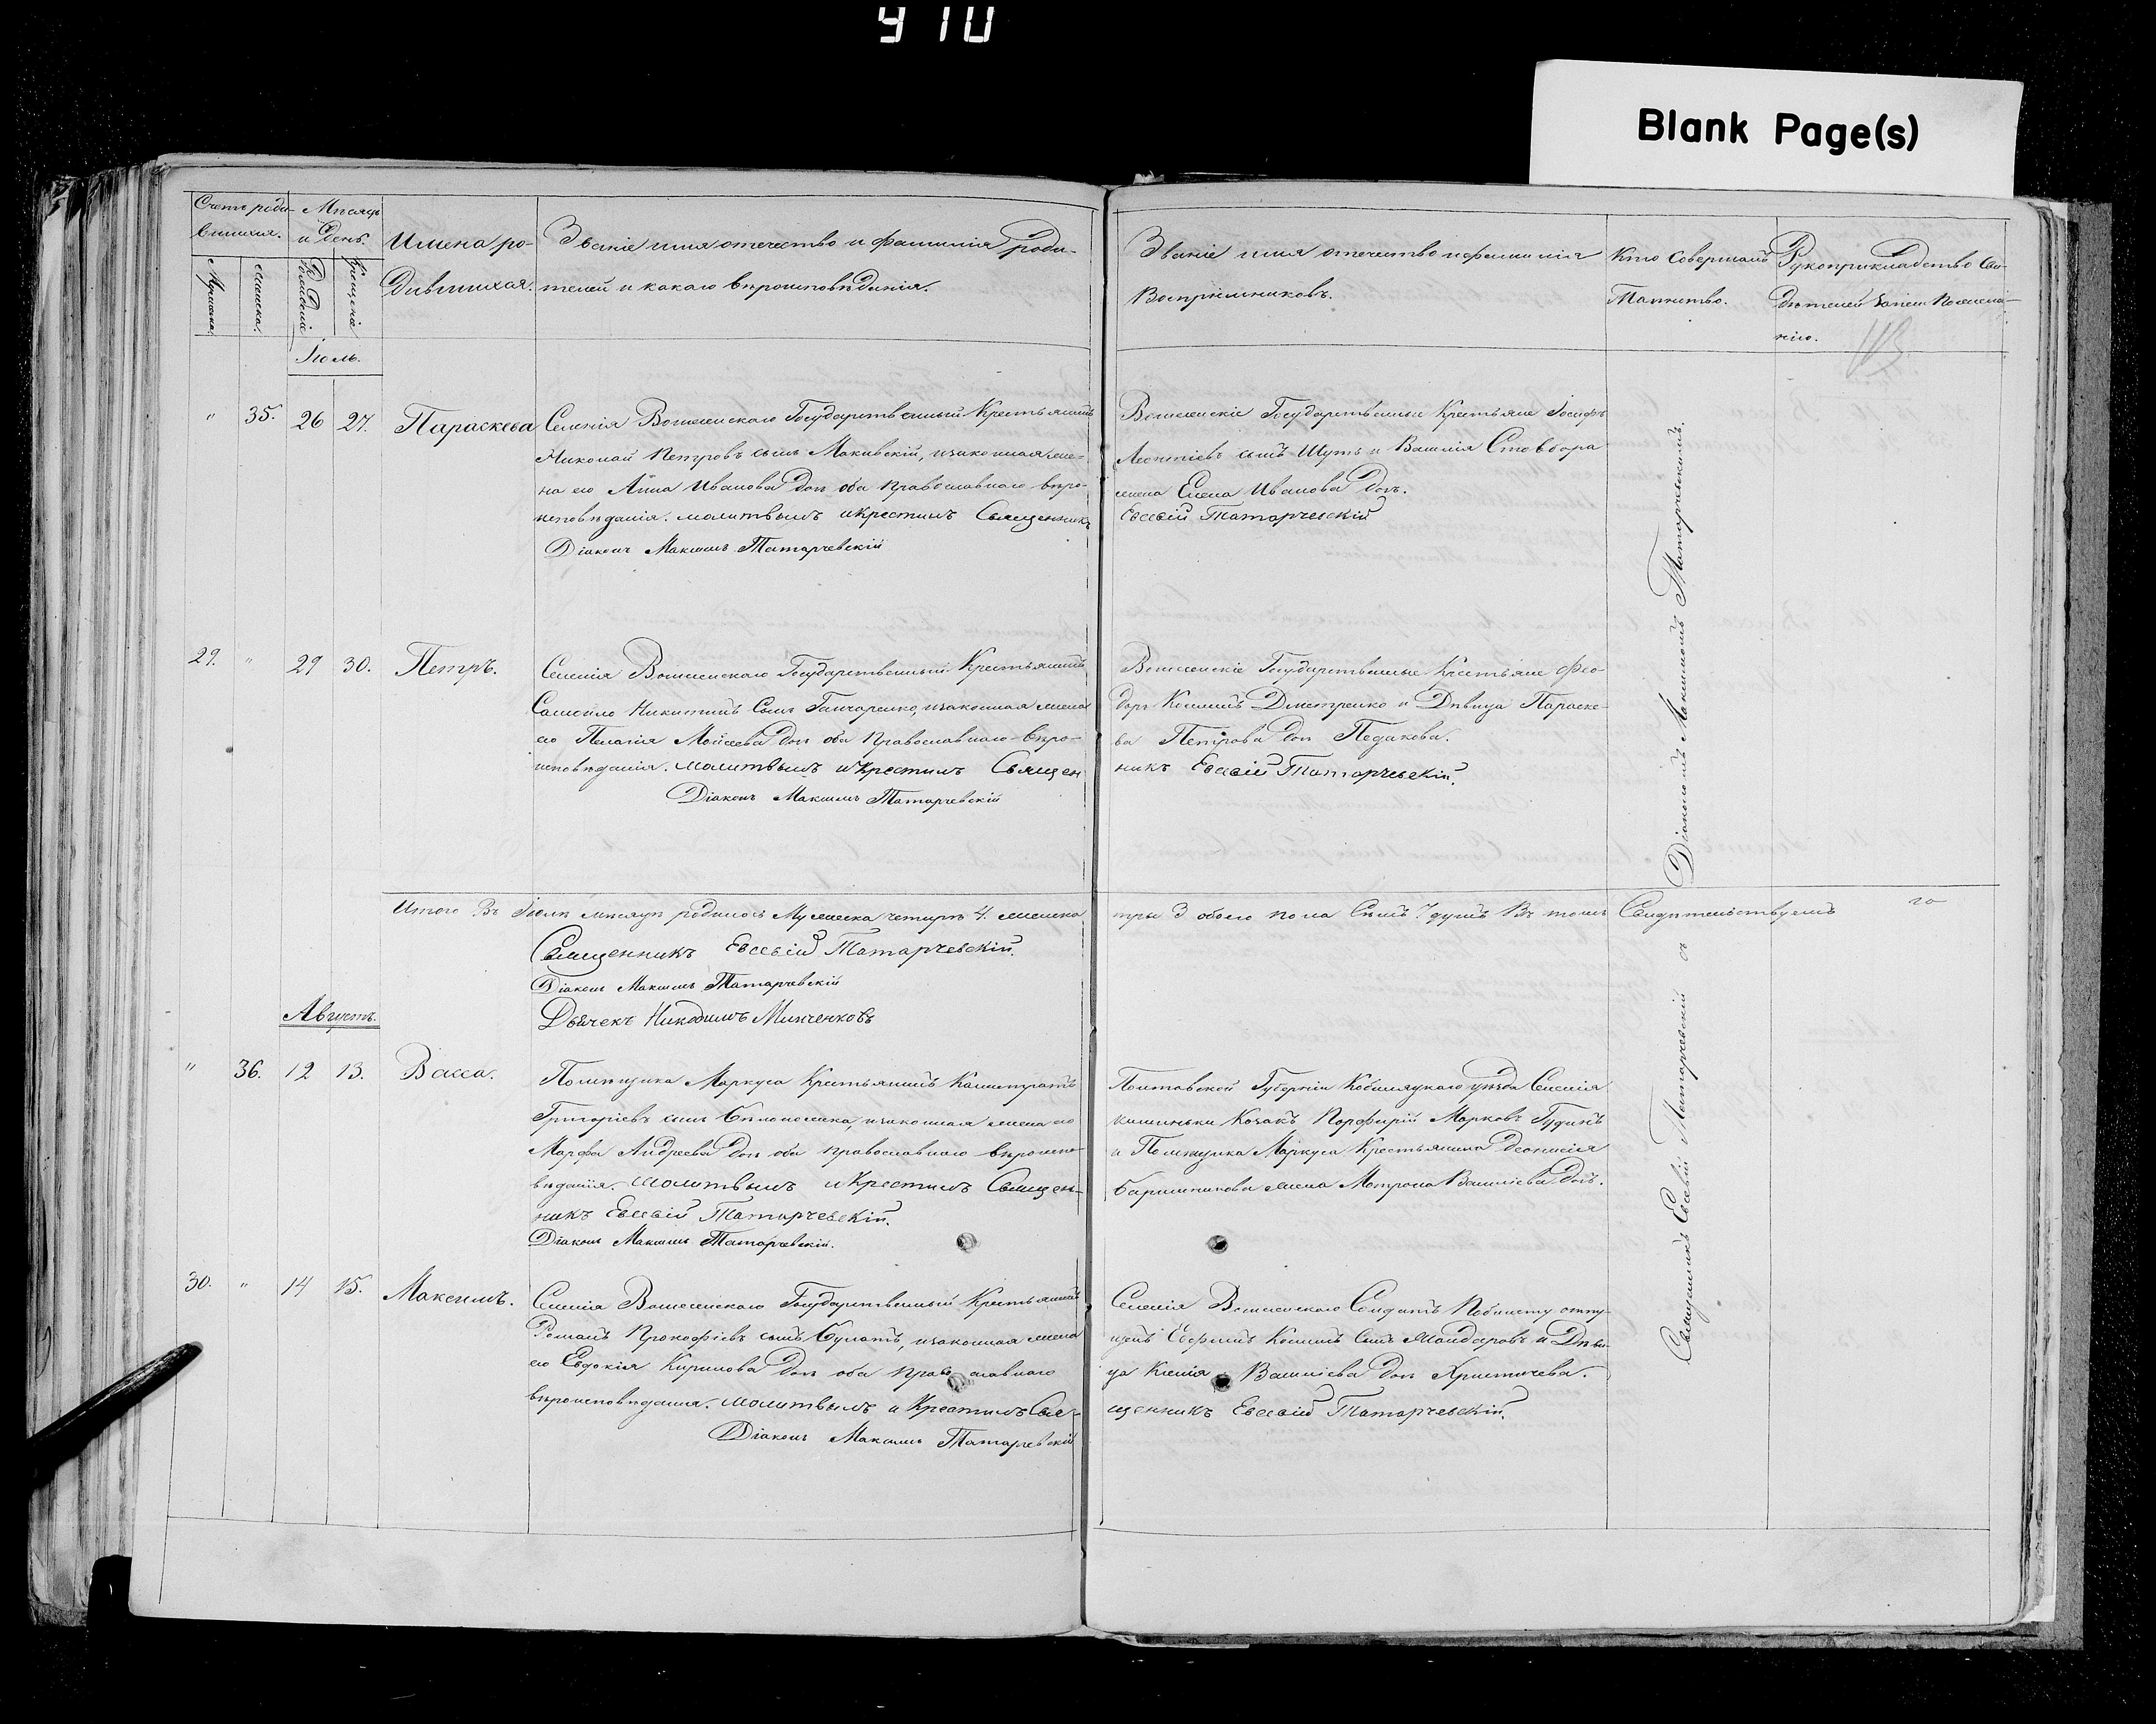 910
Blank Page(s)
Счетъ роди-
вшихся.
Мѣсяцъ
и День.
Мужеска.
Женска.
Рожденія
Крещенія
Имена ро-
дившихся.
Званіе имя отечество и фамилія роди-
телей и какаго вѣроисповѣданія.
Званіе имя отечество и фамилія
Воспріемниковъ.
Кто Совершалъ
Таинство.
Рукоприкладство Сви-
дѣтелей записи по желан-
нію.
Іюль.
" 35. 26 27. Параскева
Селенія Государственный Крестьянинъ
Николай Петровъ сынъ Макивскій, изаконная же-
на его Анна Иванова Доч оба православнаго вѣро-
исповѣданія. молитвилъ икрестилъ Священникъ
Діаконъ Максимъ Татарчевскій
Государственные Крестьяне Іосифъ
Леонтіевъ сынъ Шутъ и Василія Стовбора
жена Елена Иванова Доч.
Евсевій Татарчевскій
29. " 29 30. Петръ.
Селенія Государственный Крестьянинъ
Самойло Никитинъ Сынъ Ганчаренко, изаконная жена
его Пелагія Мойсеева Доч оба Православнаго вѣро-
исповѣданія. молитвилъ икрестилъ Священ
Діаконъ Максимъ Татарчевскій
Государственные Крестьяне Фео-
доръ Косминъ Дметренко и Дѣвица Параске-
ва Петрова Доч
никъ Евсевій Татарчевскій.
Діаконъ Максимъ Татарчевскій.
Итого Въ Іюлѣ мѣсяцѣ родилось Мужеска четыре 4. женска
три 3 обоего пола Семъ 7 душъ Въ томъ Свидѣтельствуемъ
Священникъ Евсевій Татарчевскій.
Діаконъ Максимъ Татарчевскій
Дьячекъ Никодимъ Минченковъ
Августъ.
" 36. 12 13. Васса.
Помѣщика Маркуса Крестьянинъ Калистратъ
Григоріевъ сынъ изаконная жена его
Марфа Андреева Доч оба православнаго вѣроиспо-
вѣданія. молитвилъ икрестилъ Священ-
никъ Евсевій Татарчевскій.
Діаконъ Максимъ Татарчевскій.
Полтавской Губерніи Кобиляцкаго уѣзда Селенія
Козакъ Порфирій Марковъ
и Помѣщика Маркуса Крестьянина Деонисія
Баришникова жена Матрона Василіева Доч.
30. " 14 15. Максимъ.
Селенія Государственный Крестьянинъ
Романъ Прокофіевъ сынъ Булатъ, изаконная жена
его Евдокія Кирилова Доч оба православнаго
вѣроисповѣданія. молитвилъ и крестилъ Свя-
Діаконъ Максимъ Татарчевскій
Селенія Солдатъ Побилету отпу-
щенъ Косминъ Сынъ и Дѣви-
ца Ксенія Василіева Доч Христичева.
щенникъ Евсевій Татарчевскій.
Священникъ Евсевій Татарчевскій съ